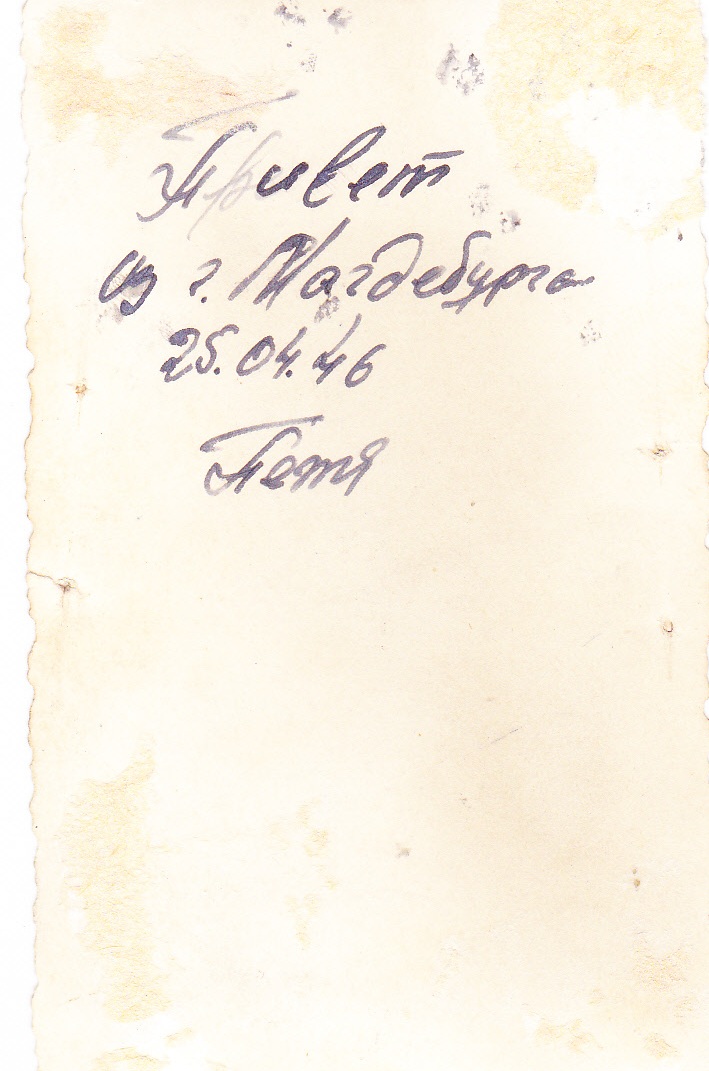 Привет
из г. Магдебурга
25.04.46
Петя